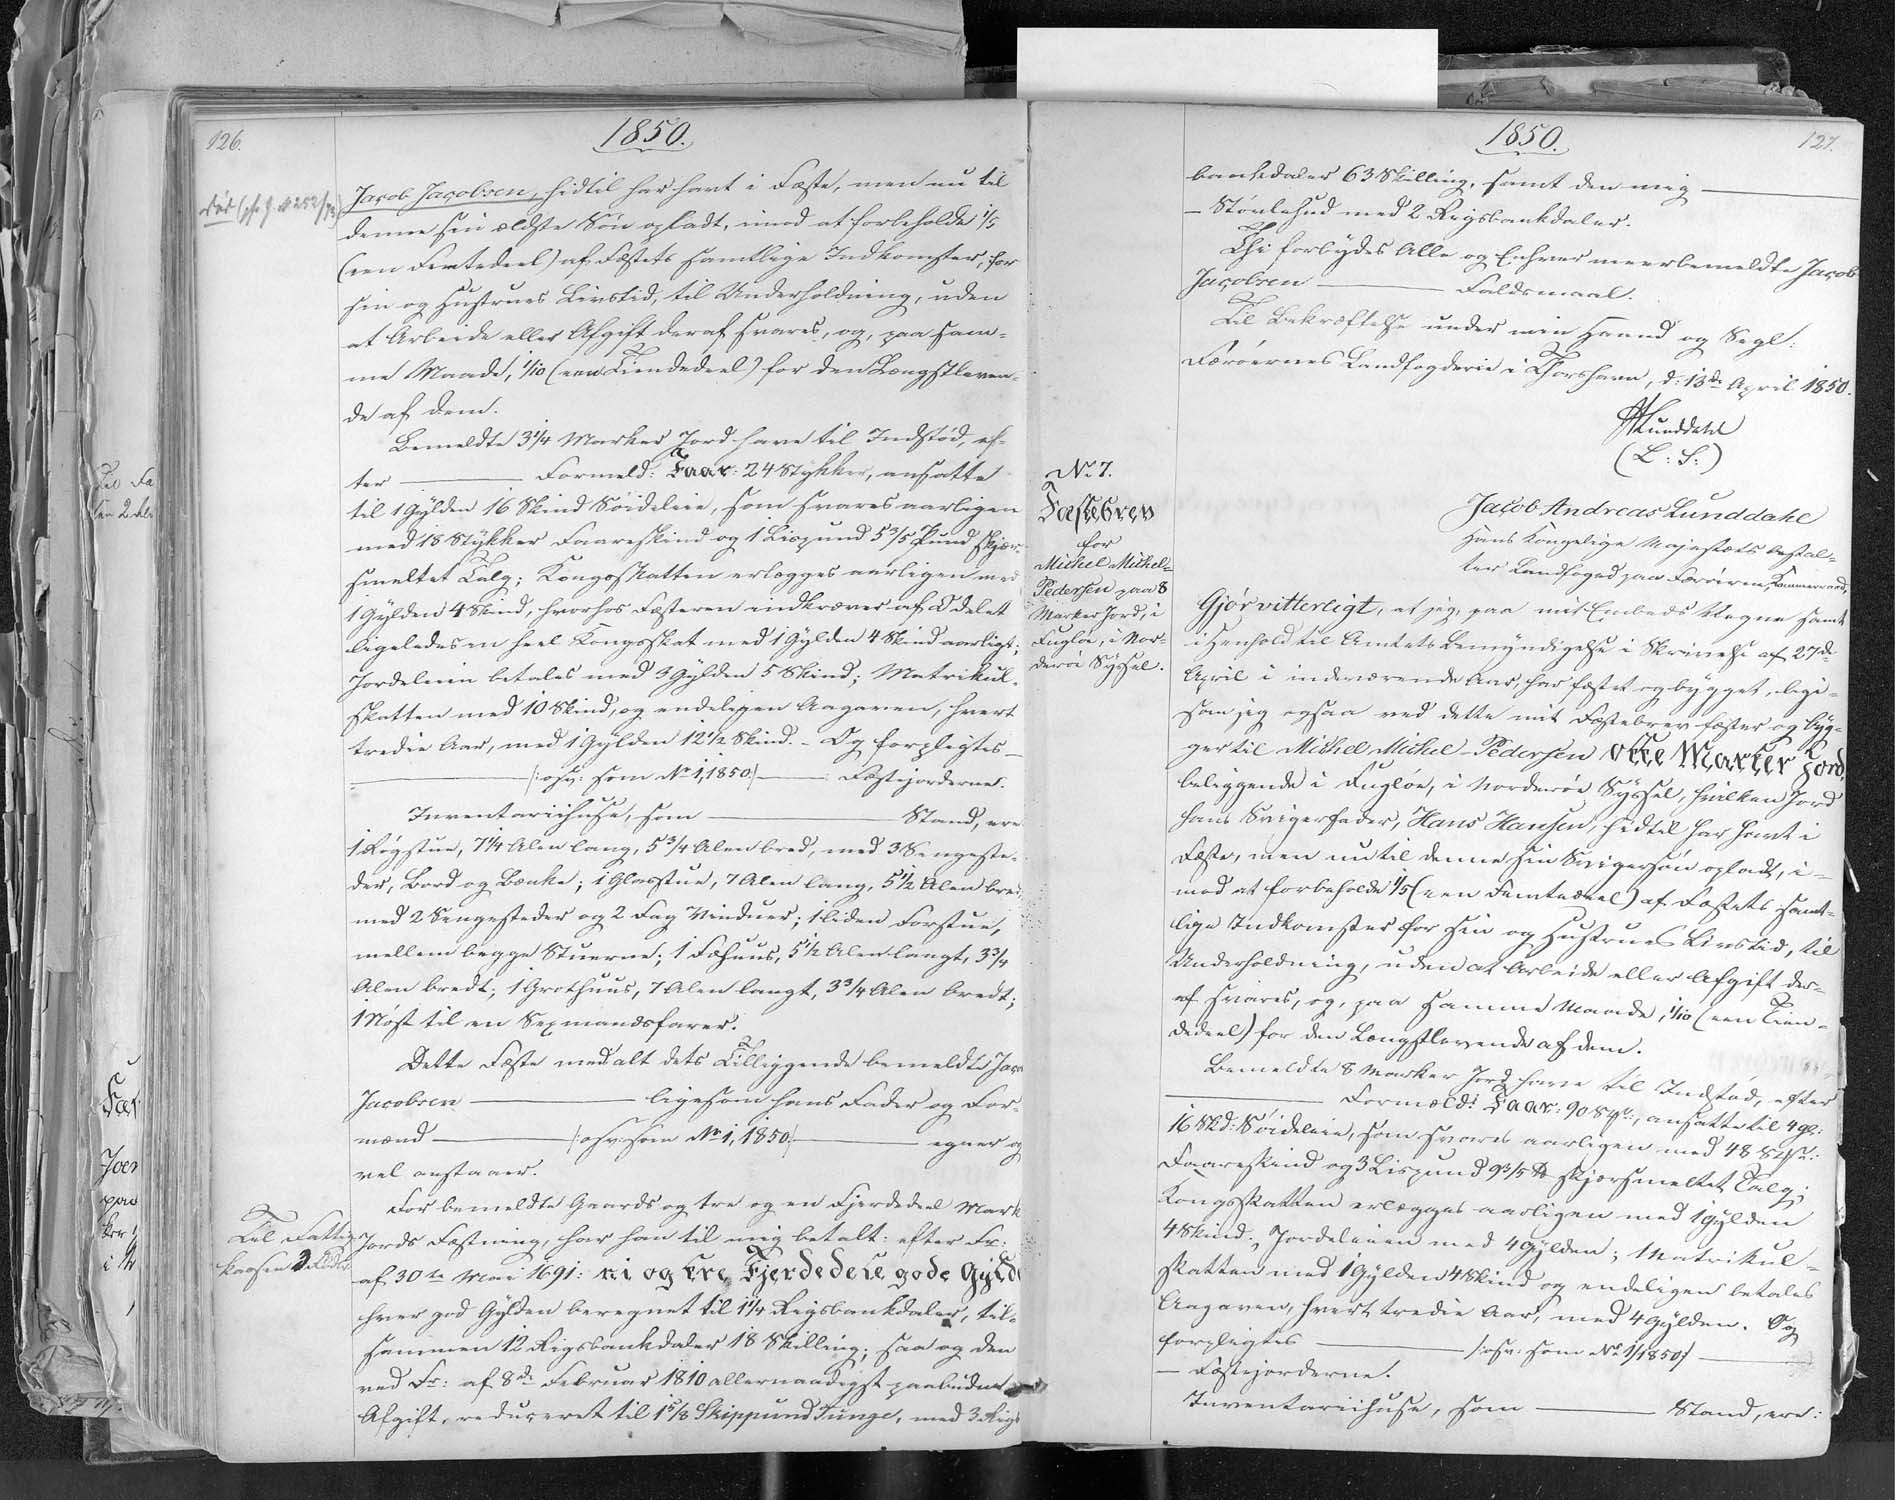 126.
1850.
Jacob Jacobsen, hidtil har havt i Fæste, men nu til
denne sin ældste Søn opladt, imod at forbeholde 1/5
(een Femtedeel) af Fæstets samtlige Indkomster, for
sin og Hustrues Livstid, til Underholdning, uden
at Arbeide eller Afgift deraf svares, og, paa sam-
me Maade, 1/10 (een Tiendedeel) for den Længstleven-
de af dem.
Bemeldte 3 1/4 Marker Jord have til Indstød, ef-
ter ——— Formeld: Faar: 24 Stykker, ansatte
til 1 Gylden 16 Skind Søideleie, som svares aarligen
med 18 Stykker Faareskind og 1 Lispund 5 3/5 Pund skjær-
smeltet Talg; Kongsskatten erlægges aarligen med
1 Gylden 4 Skind, hvorhos Fæsteren indkræver af Odelet
ligeledes en heel Kongsskat med 1 Gylden 4 Skind aarligt;
Jordeleien betales med 3 Gylden 5 Skind; Matrikul-
skatten med 10 Skind, og endeligen Aagaven, hvert
tredie Aar, med 1 Gylden 12 1/2 Skind. — Og forpligtes —
——— /: osv: som No 1, 1850 :/ ——— Fæstejorderne.
Inventariihuse, som ——— Stand, ere
1 Røgstue, 7 1/4 Alen lang, 5 3/4 Alen bred, med 3 Sengeste-
der, Bord og Bænke; 1 Glasstue, 7 Alen lang, 5 1/2 Alen bred,
med 2 Sengesteder og 2 Fag Vinduer; 1 liden Forstue,
mellem begge Stuerne; 1 Fæhuus, 5 1/2 Alen langt, 3 3/4
Alen bredt; 1 Grothuus, 7 Alen langt, 3 3/4 Alen bredt;
1 Nøst til en Sexmandsfarer.
Dette Fæste med alt dets Tilliggende bemeldte Jacob
Jacobsen ——— ligesom hans Fader og For-
mænd ——— /: osv: som No 1, 1850 :/ ——— egner og
vel anstaaer.
For bemeldte Gaards og tre og en Fjerdedeel Mark
Til Fattig-
kassen 2 Rbdlr
Jords Fæstning, har han til mig betalt: efter Fr:
af 30te Mai 1691: ni og tre Fjerdedele gode Gylden
hver god Gylden beregnet til 1 1/4 Rigsbankdaler, til-
sammen 12 Rigsbankdaler 18 Skilling; saa og den
ved Fr: af 8de Februar 1810 allernaadigst paabudne
Afgift, reduceret til 1 5/8 Skippund Tunge, med 3 Rigs
127.
1850.
bankdaler 63 Skilling, samt den mig ———
— Støvlehud med 2 Rigsbankdaler.
Thi forbydes Alle og Enhver meerbemeldte Jacob
Jacobsen ——— Faldsmaal.
Til Bekræftelse under min Haand og Segl:
Færøernes Landfogderie i Thorshavn, d: 13de April 1850.
Lunddahl
(L: S:)
No 7.
Fæstebrev
for
Michel Michel-
Pedersen paa 8
Marker Jord, i
Fugløe, i Nor-
derøe Syssel.
Jacob Andreas Lunddahl
Hans Kongelige Majestæts bestal-
ter Landfoged paa Færøerne, Kammerraad,
Gjør vitterligt, at jeg, paa mit Embeds Vegne samt
i Henhold til Amtets Bemyndigelse i Skrivelse af 27de
April i indeværende Aar, har fæstet og bygget, lige-
som jeg ogsaa ved dette mit Fæstebrev fæster og byg-
ger til Michel Michel-Pedersen otte Marker Jord,
beliggende i Fugløe, i Norderøe Syssel, hvilken Jord
hans Svigerfader, Hans Hansen, hidtil har havt i
Fæste, men nu til denne sin Svigersøn opladt, i-
mod at forbeholde 1/5 (een Femtedeel) af Fæstets samt-
lige Indkomster for sin og Hustrues Livstid, til
Underholdning, uden at Arbeide eller Afgift der-
af svares, og, paa samme Maade, 1/10 (een Tien-
dedeel) for den Længstlevende af dem.
Bemeldte 8 Marker Jord have til Indstød, efter
——— Formeld: Faar: 90 Stkr:, ansatte til 4 Gl:
16 Skd: Søideleie, som svares aarligen med 48 Stkr:
Faareskind og 3 Lispund 9 3/5 ℔ skjærsmeltet Talg;
Kongsskatten erlægges aarligen med 1 Gylden
4 Skind; Jordeleien med 4 Gylden; Matrikul-
skatten med 1 Gylden 4 Skind og endeligen betales
Aagaven, hvert tredie Aar, med 4 Gylden. Og
forpligtes ——— /: osv: som No 1/1850 :/ ———
— Fæstejorderne.
Inventariihuse, som ——— Stand, ere: